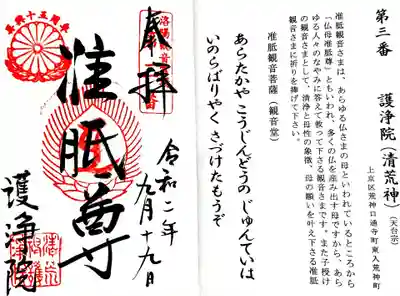 第三番　護浄院（清荒神）（天台宗）
上京区荒神口通寺町東入荒神町
准胝観音さまは、あらゆる仏さまの母といわれているところから
「仏母准胝尊」ともいわれ、多くの仏を産み出す母ですから、あら
ゆる人々のなやみに答えて救って下さる観音さまです。また子授け
の観音さまとして、清浄と母性の象徴、母の願いを叶え下さる准胝
観音さまに祈りを捧げて下さい。
准胝観音菩薩（観音堂）
あらたかや こうじんどうの じゅんていは
いのらばりやく さづけたもうぞ
奉拝
准胝尊
令和二年
九月十九日
護浄院